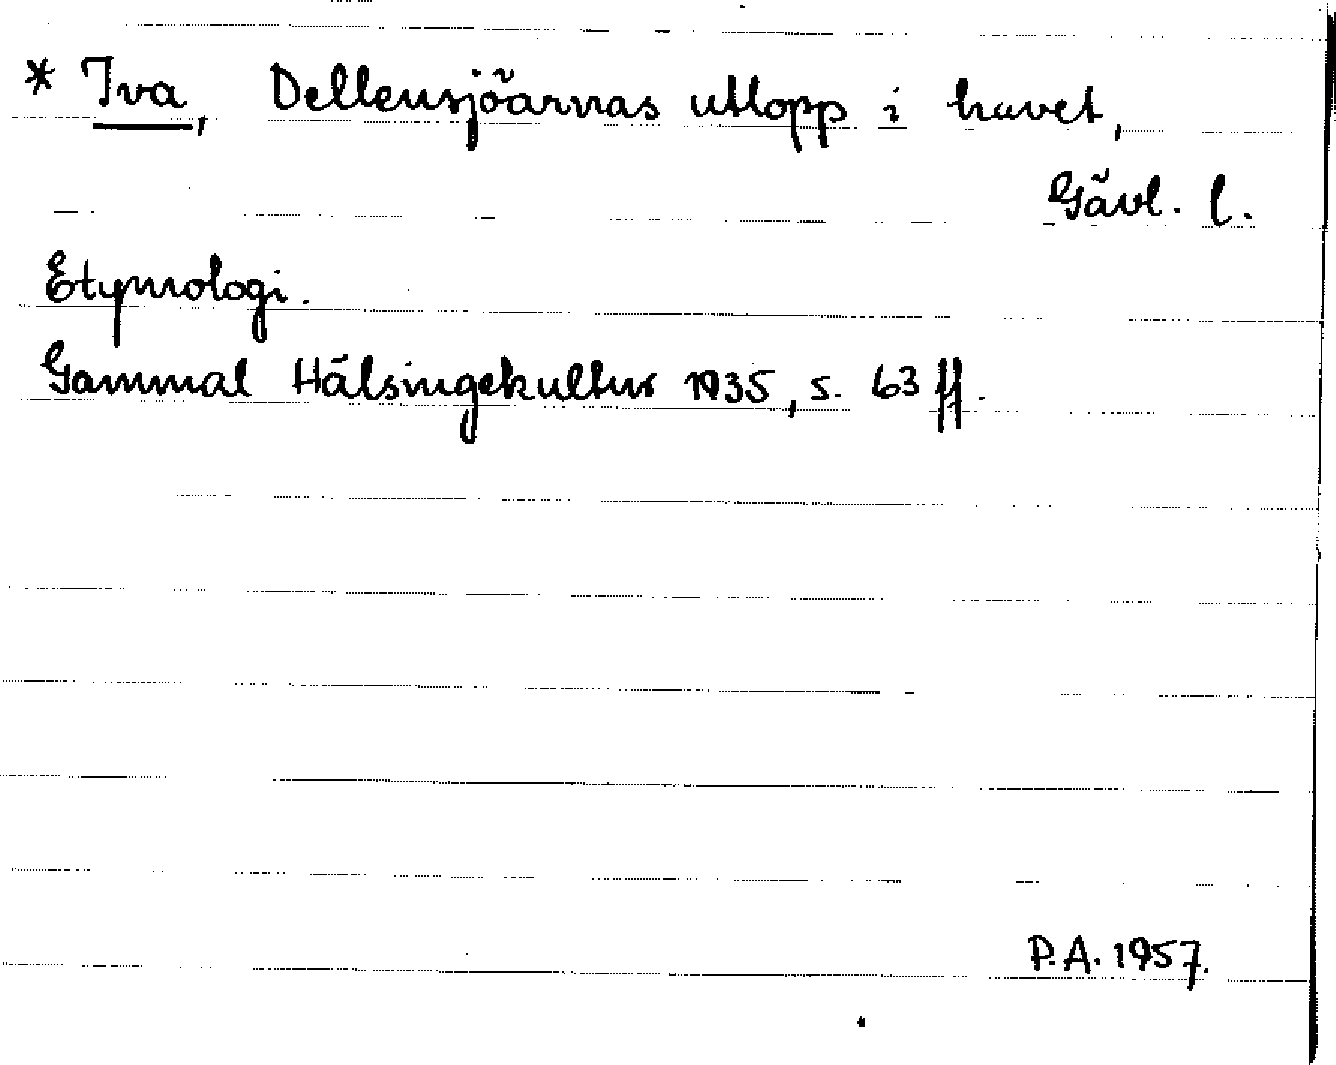 * Iva, Dellensjöarnas utlopp i havet,
Gävl. l.
Etymologi.
Gammal Hälsingekultur 1935, s. 63 ff.
P.A. 1957.